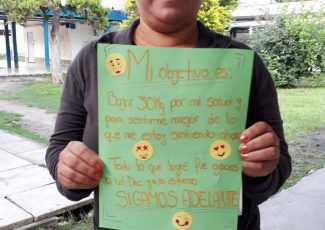 Mi objetivo es:
Bajar 30Kg por mi salud y
para sentirme mejor de lo
que me estoy sintiendo ahora
Todo lo que logré fue gracias
a la Doc y mi esfuerzo
SIGAMOS ADELANTE